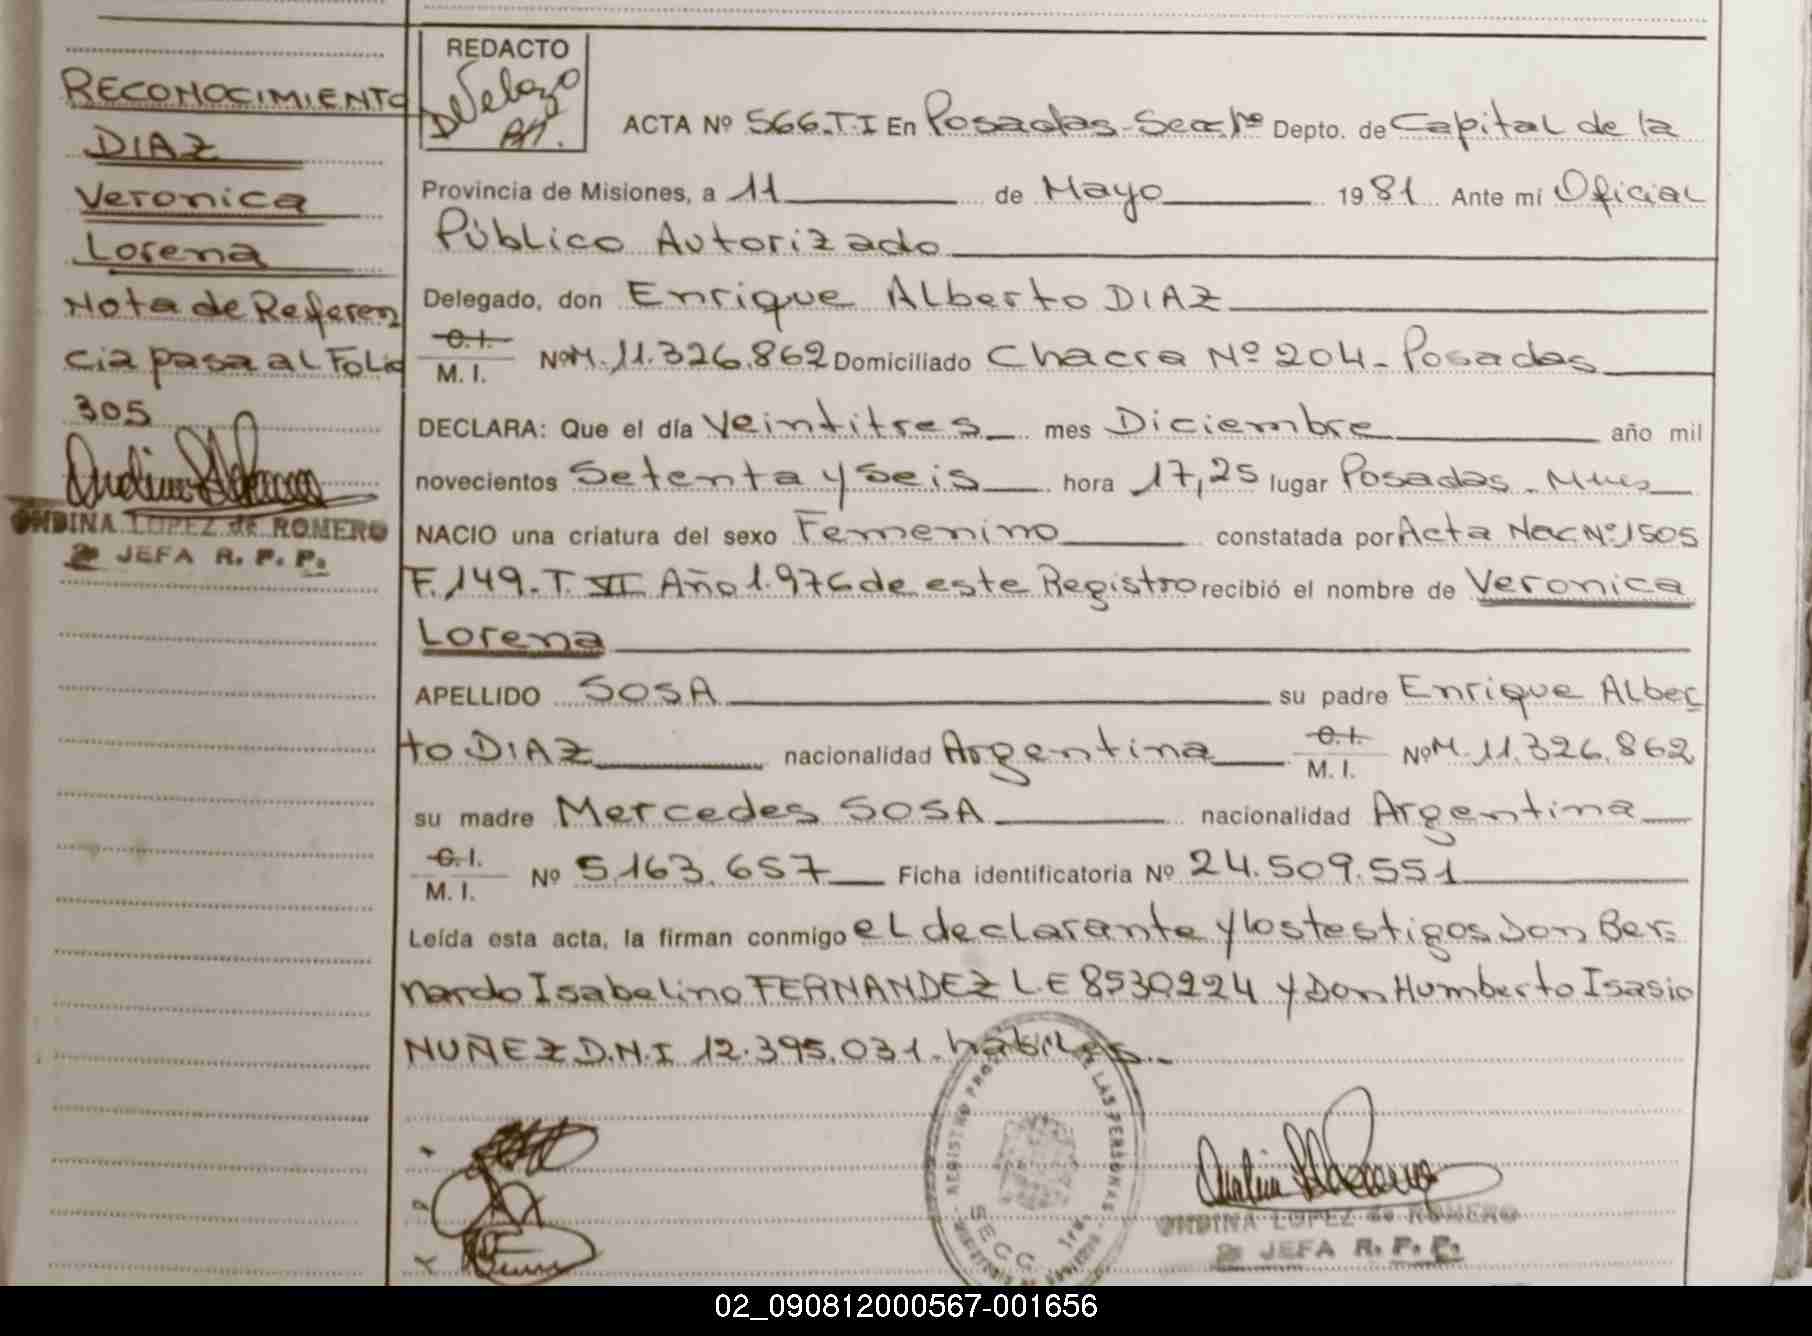 RECONOCIMIENTO
DIAZ
Veronica
Lorena
Nota de Referen
cia pasa al Folio
305
ONDINA LOPEZ de ROMERO
2º JEFA R. P. P.
REDACTO
ACTA Nº 566.T.I En Posadas-Secc 1ª Depto. de Capital de la
Provincia de Misiones, a 11 de Mayo 1981 Ante mí Oficial
Público Autorizado
Delegado, don Enrique Alberto DIAZ
C.I. M.I. Nº M.11.326.862 Domiciliado Chacra Nº 204-Posadas
DECLARA: Que el día Veintitres mes Diciembre año mil
novecientos Setenta y Seis hora 17,25 lugar Posadas-Mnes
NACIO una criatura del sexo Femenino constatada por Acta Nac Nº 1505
F.149-T. VI Año 1.976 de este Registro recibió el nombre de Veronica
Lorena
APELLIDO SOSA su padre Enrique Alber
to DIAZ nacionalidad Argentina C.I. M.I. Nº M.11.326.862
su madre Mercedes SOSA nacionalidad Argentina
C.I. M.I. Nº 5.163.657 Ficha identificatoria Nº 24.509.551
Leída esta acta, la firman conmigo el declarante y los testigos Don Ber-
nardo Isabelino FERNANDEZ L.E 8530224 y Don Humberto Isasio
NUÑEZ D.N.I 12.395.031-habiles-
REGISTRO DE LAS PERSONAS
SECC 1ra.
ONDINA LOPEZ de ROMERO
2º JEFA R. P. P.
02_090812000567-001656